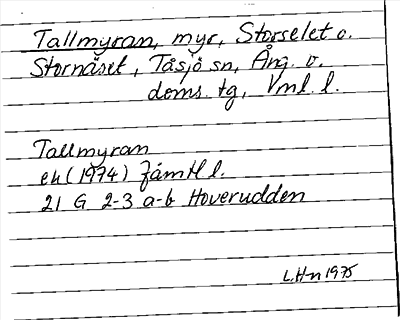 Tallmyran, myr, Storselet o.
Stornäset, Tåsjö sn, Ång. v.
doms. tg, Vml. l.
Tallmyran
ek (1974) Jämtl l.
21 G 2-3 a-b Hoverudden
L.H-n 1975